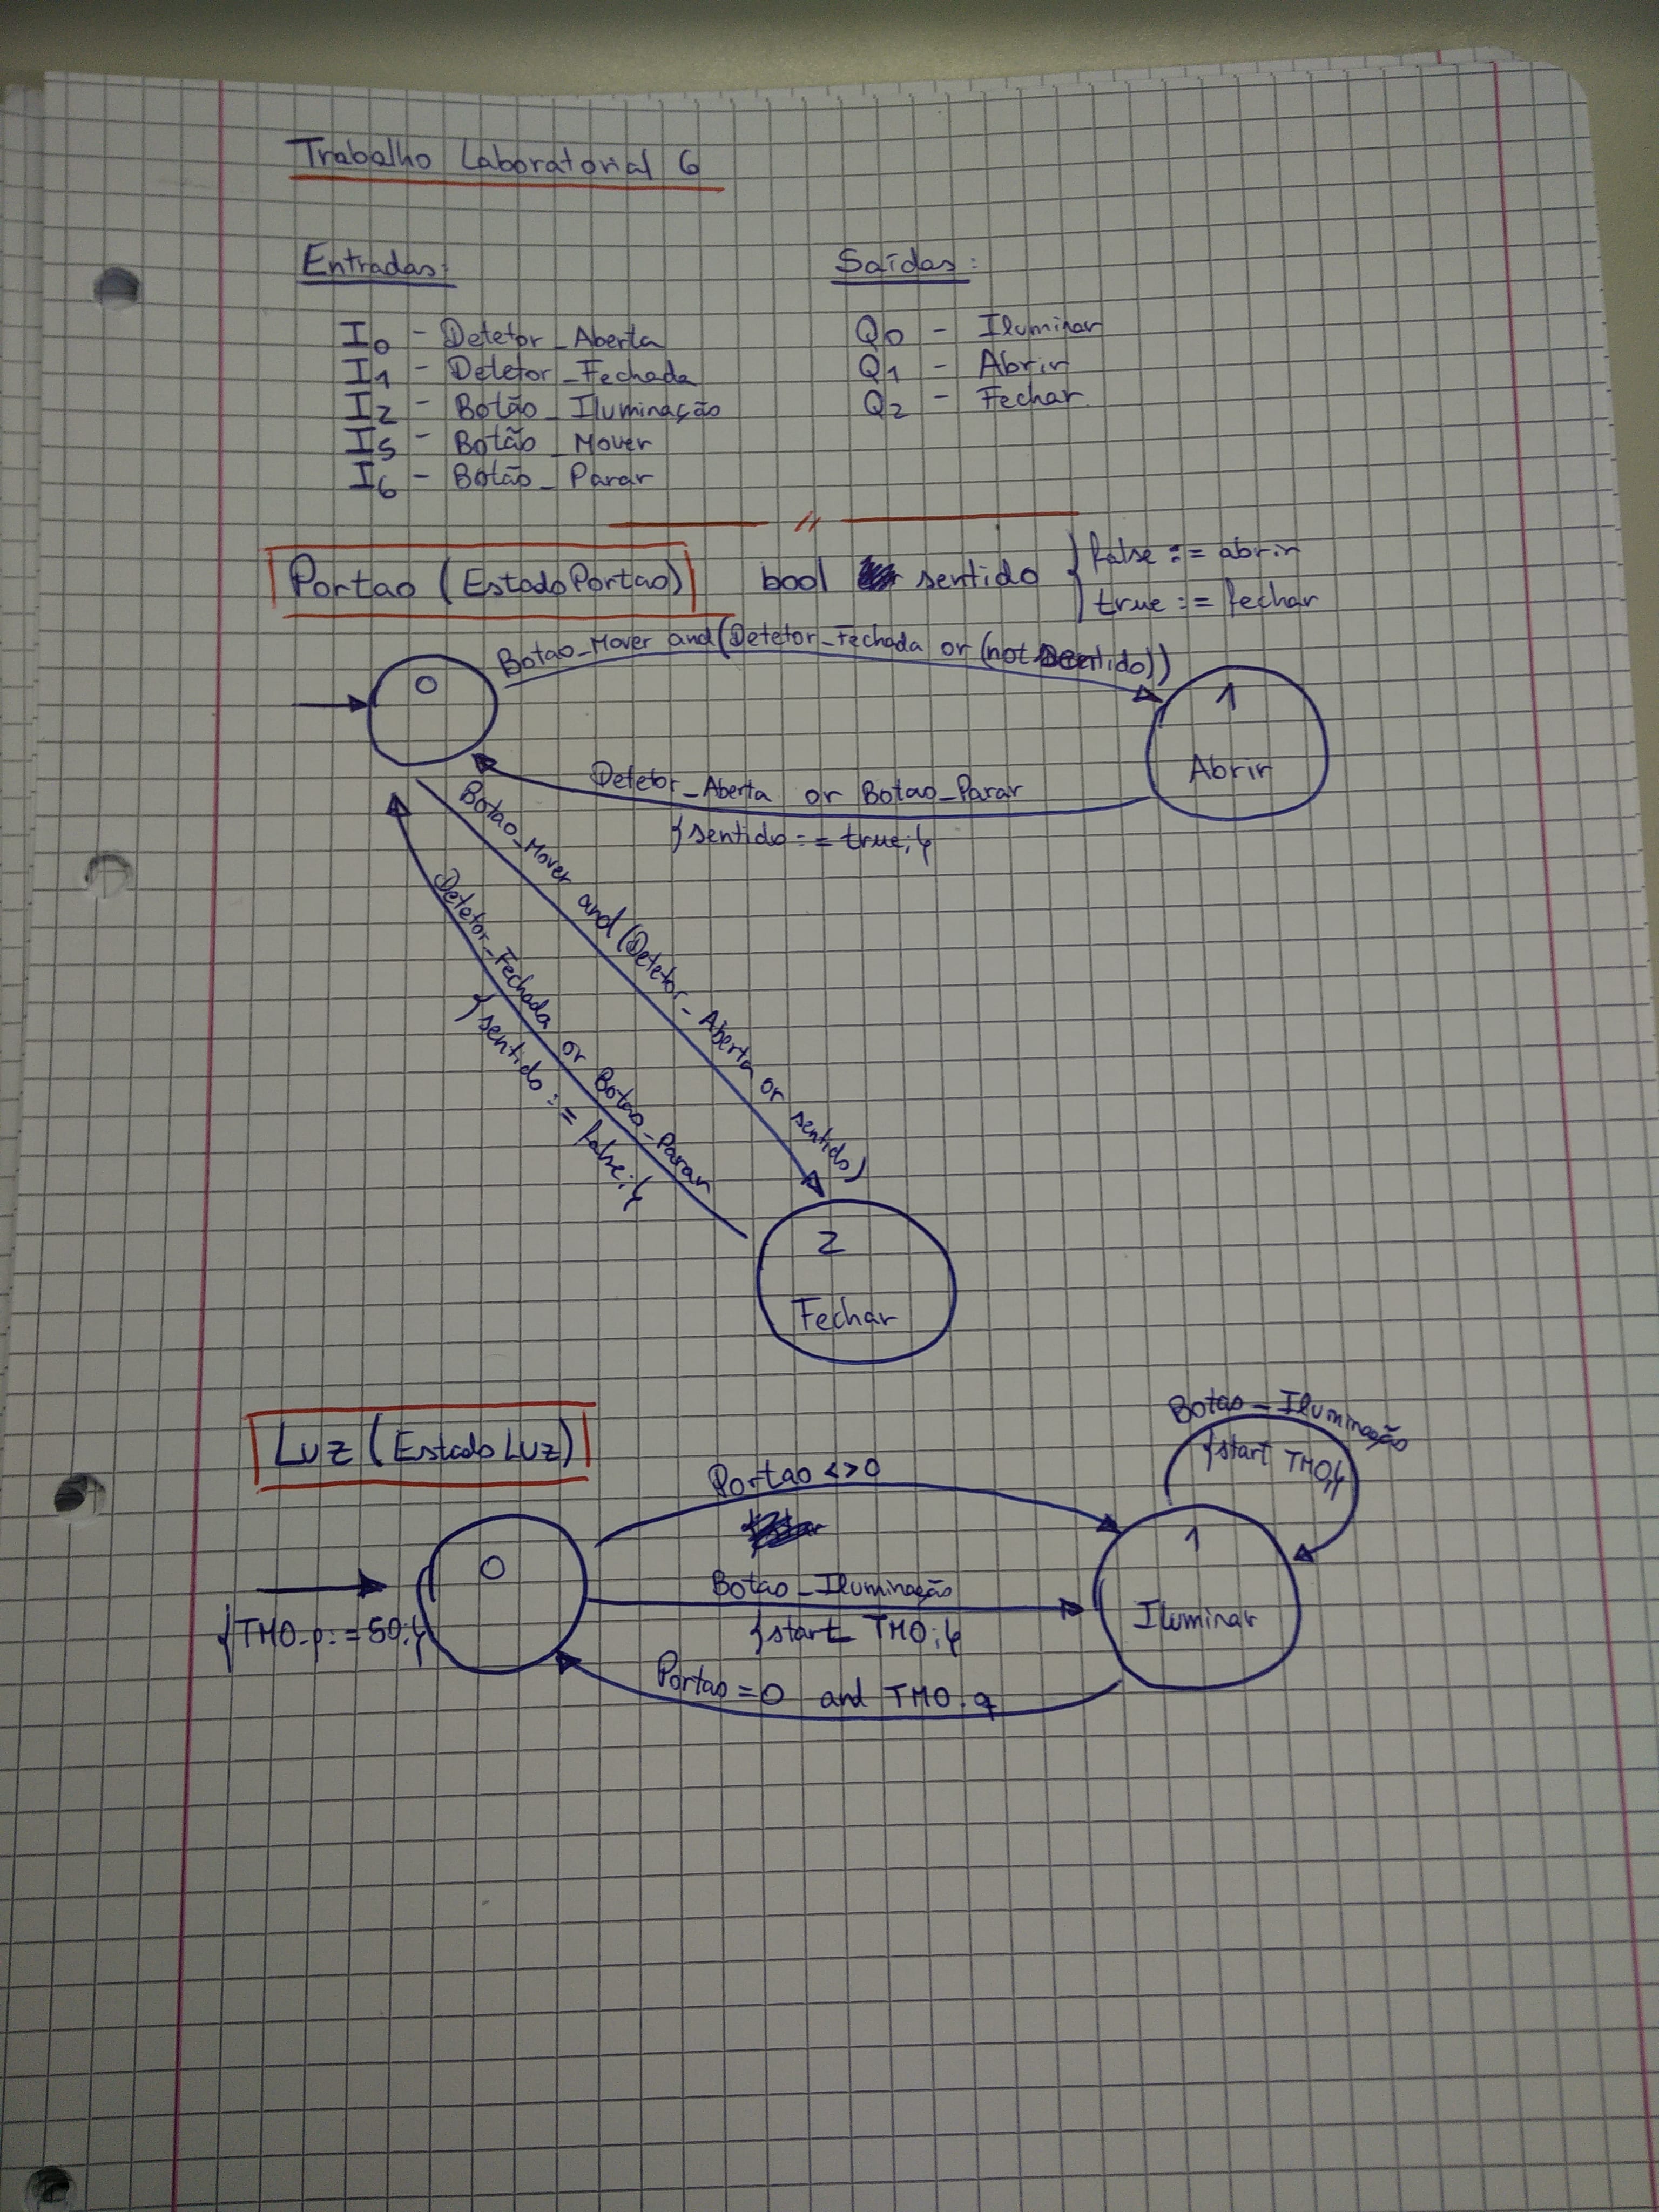 Trabalho Laboratorial 6
Entradas:
I0 - Detetor_Aberta
I1 - Detetor_Fechada
I2 - Botão_Iluminação
I5 - Botão_Mover
I6 - Botão_Parar
Saídas:
Q0 - Iluminar
Q1 - Abrir
Q2 - Fechar
Portao (EstadoPortao)
bool sentido
{ false := abrir
true := fechar
Botao_Mover and (Detetor_Fechada or (not sentido))
0
1
Abrir
Detetor_Aberta or Botao_Parar
{sentido := true;}
Botao_Mover and (Detetor_Aberta or sentido)
Detetor_Fechada or Botao_Parar
{sentido := false;}
2
Fechar
Luz (Estado Luz)
Botao_Iluminação
{start TM0;}
Portao <> 0
0
1
Iluminar
Botao_Iluminação
{start TM0;}
{TM0.p:=50;}
Portao = 0 and TM0.q